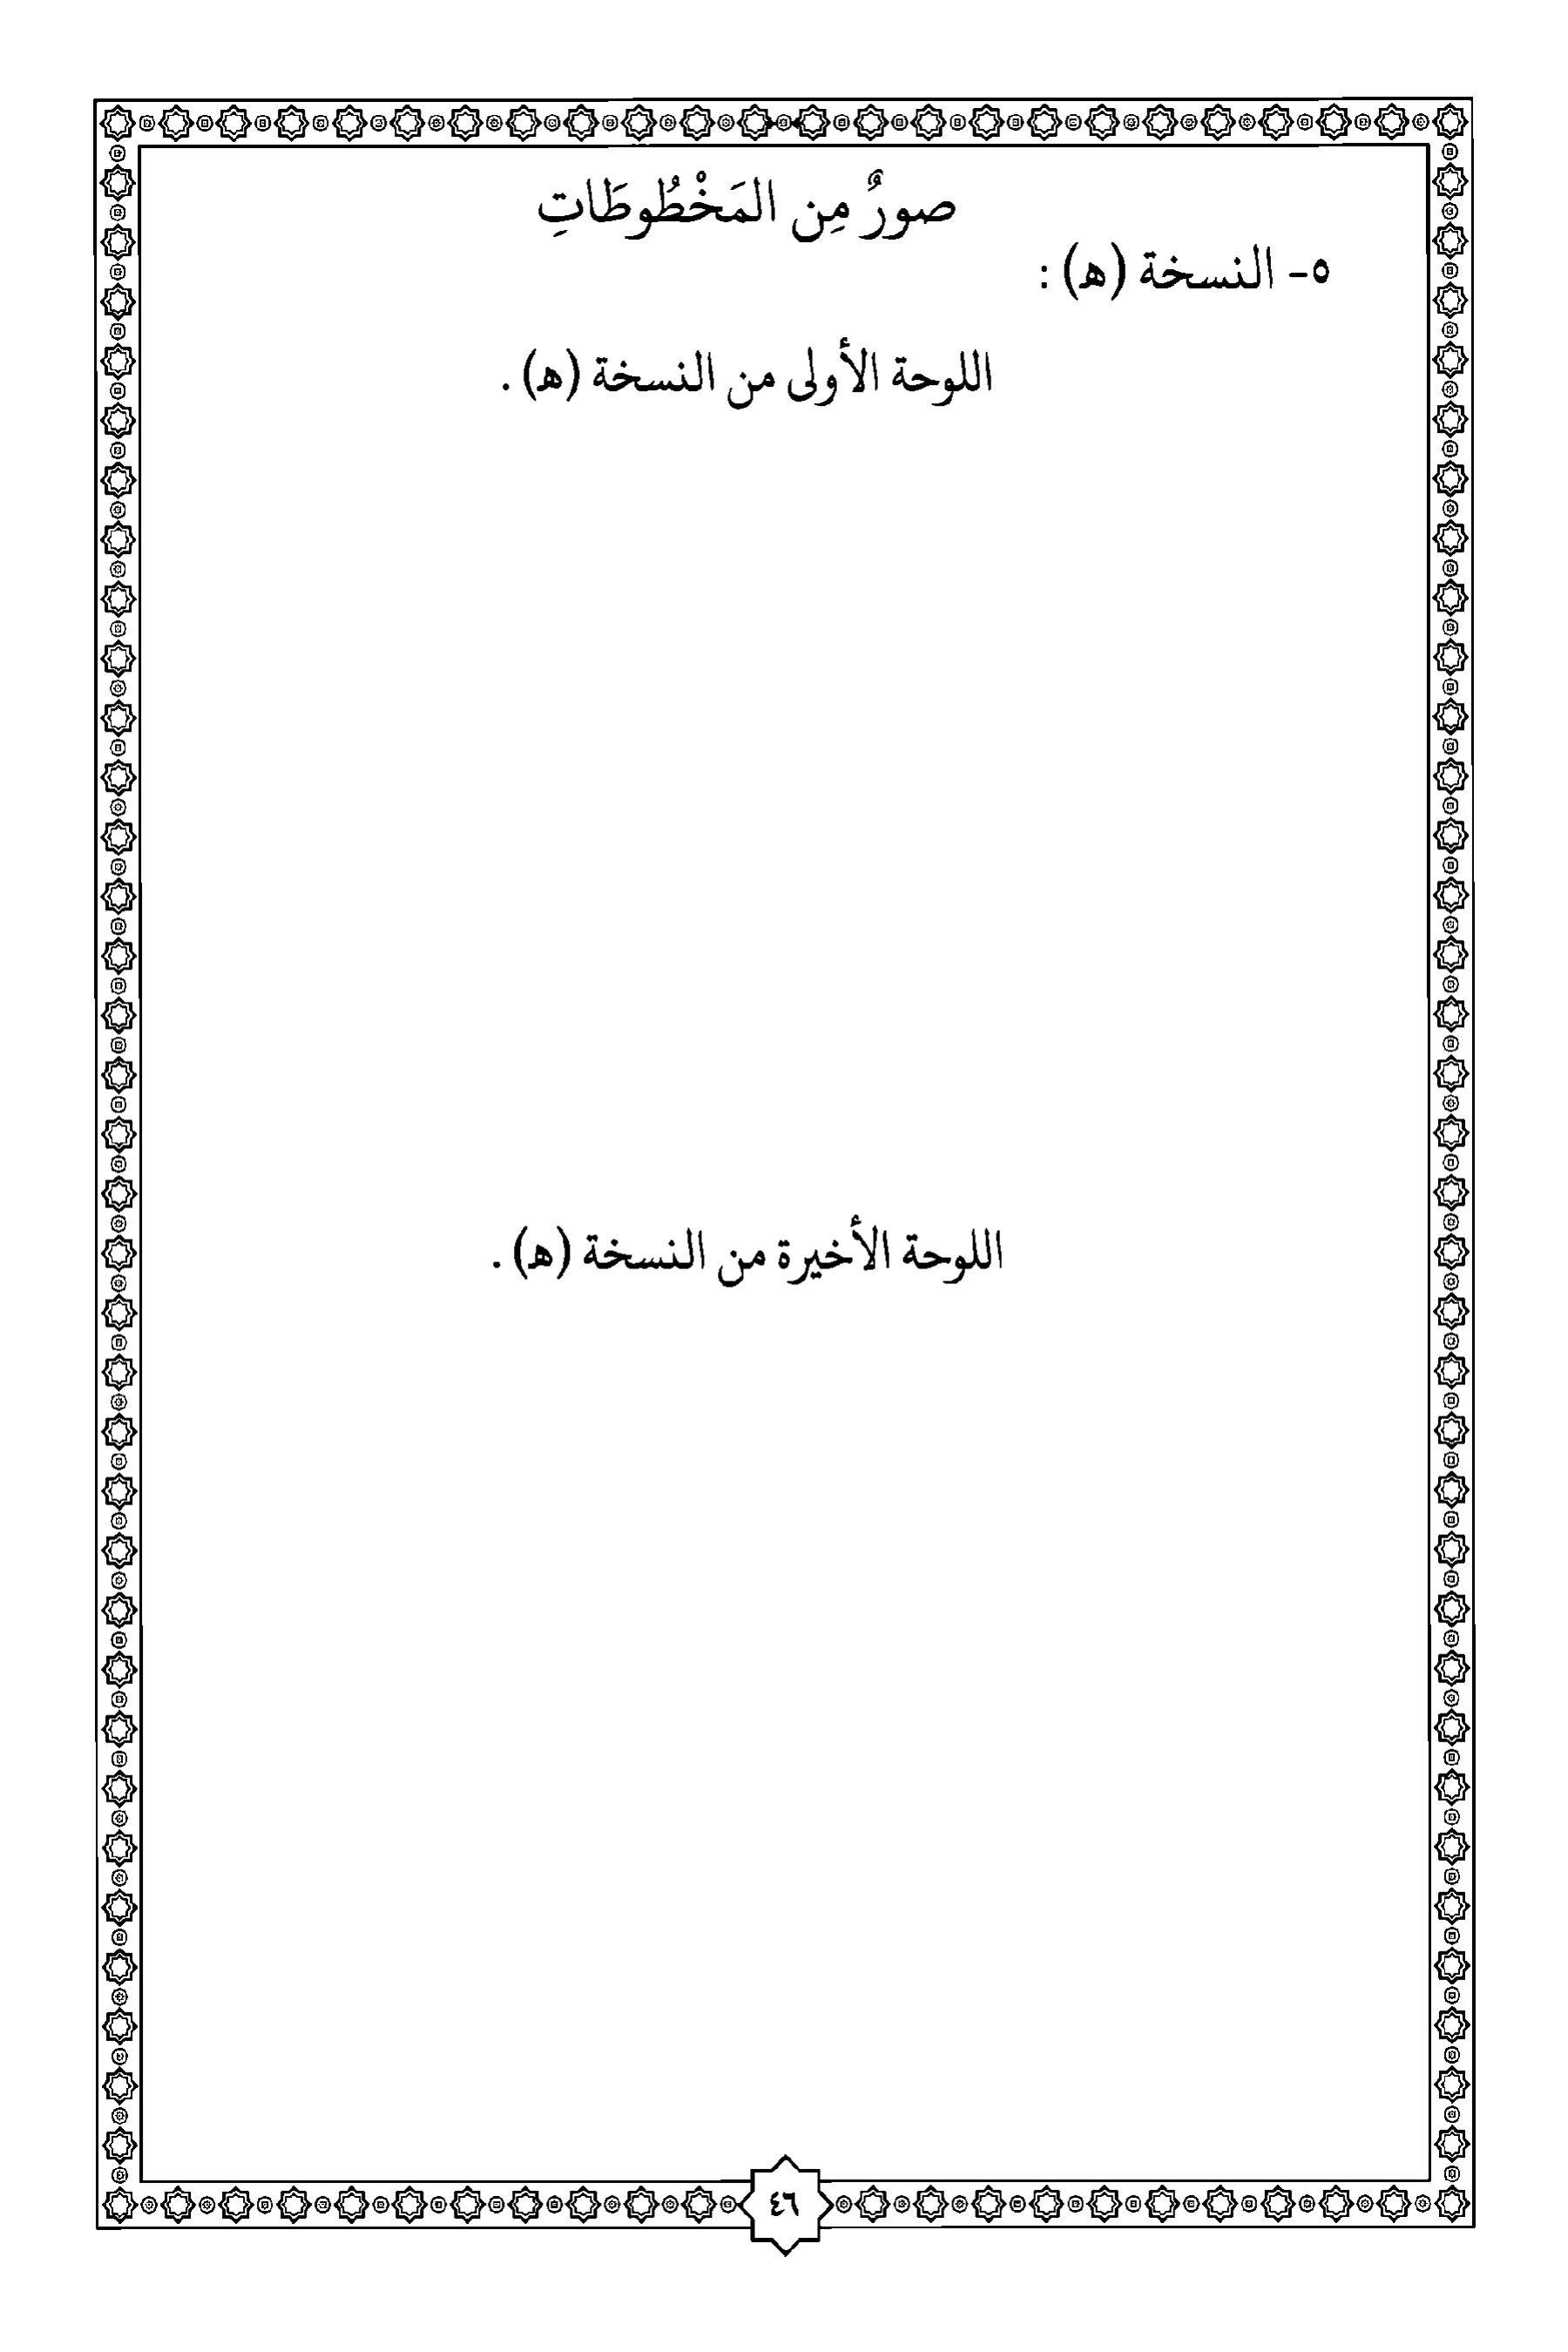 صورٌ مِن المَخْطُوطَاتِ
٥- النسخة (هـ) :
اللوحة الأولى من النسخة (هـ) .
اللوحة الأخيرة من النسخة (هـ) .
٤٦